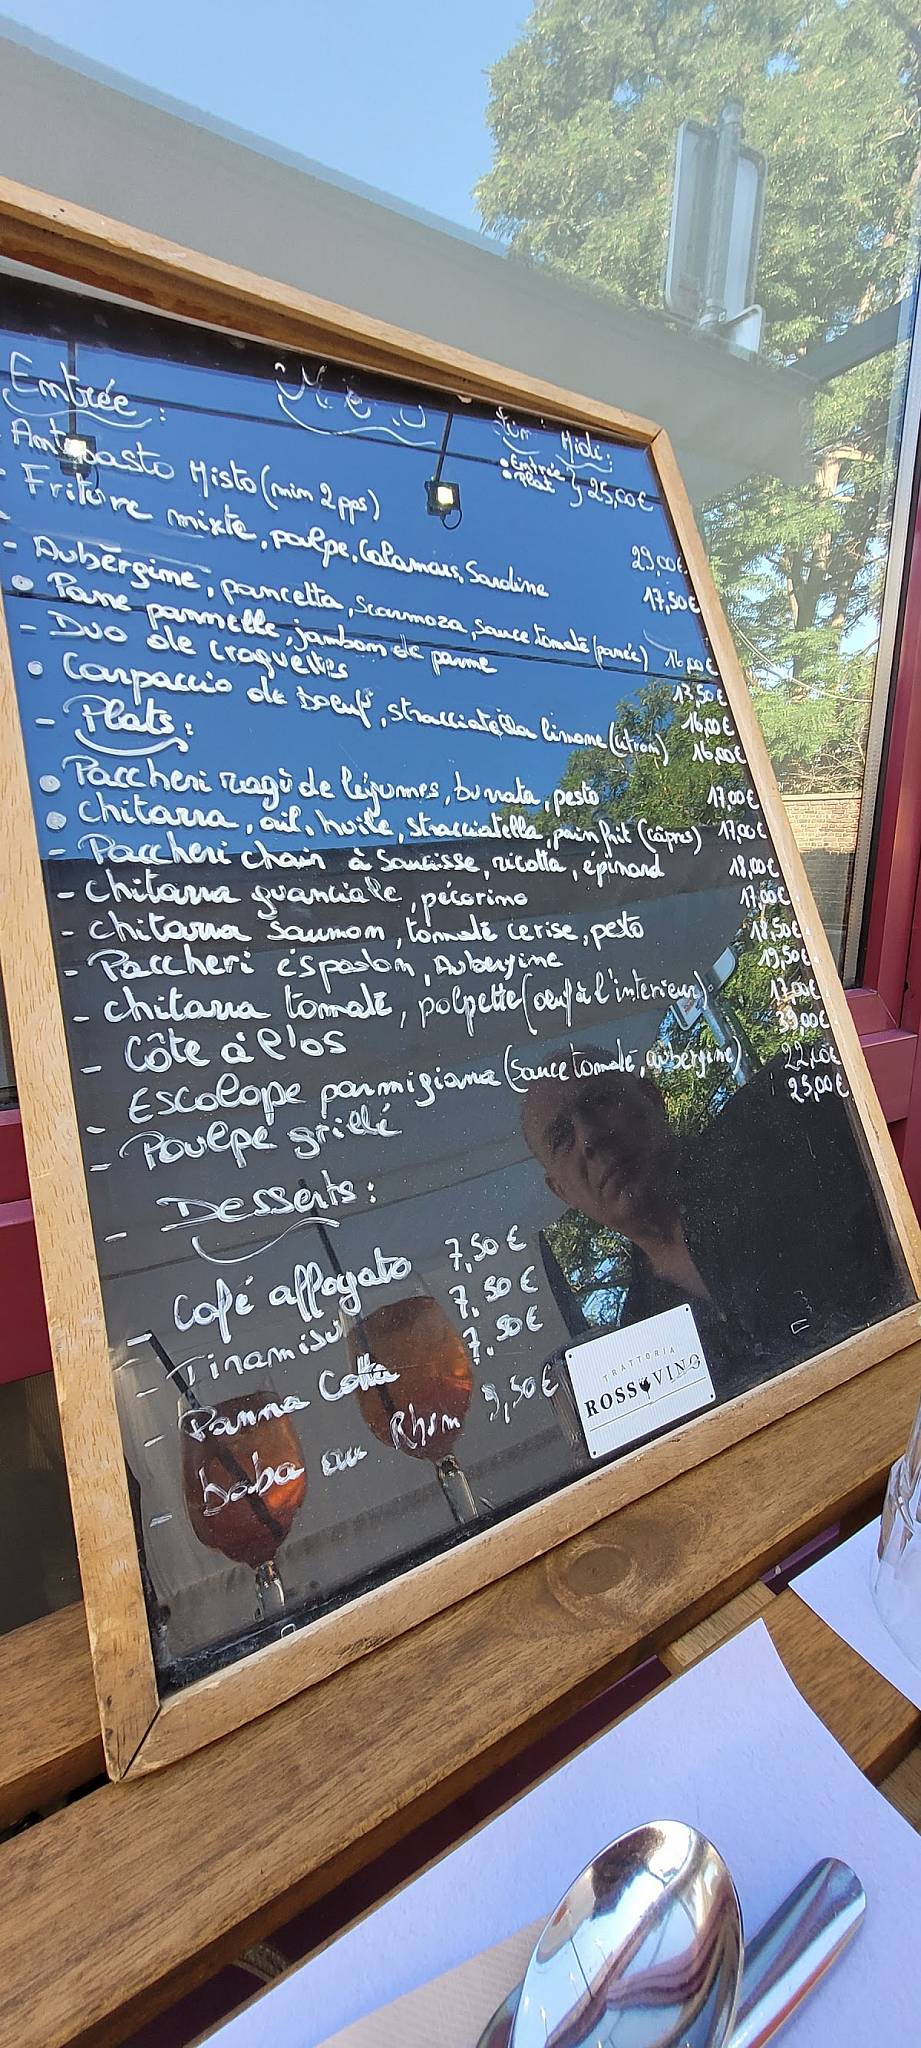 Entrée :
Menu
Midi :
• Entrée
• Plat } 25,00€
- Antipasto Misto (min 2 pps) 29,00€
- Friture mixte, poulpe, Calamars, Sardine 17,50€
- Aubergine, pancetta, scarmoza, sauce tomate (panée) 16,00€
• Pane pannelle, jambon de parme 13,50€
- Duo de croquettes 16,00€
• Carpaccio de boeuf, stracciatella limone (citron) 16,00€
- Plats :
• Paccheri ragù de légumes, burrata, pesto 17,00€
• Chitarra, ail, huile, stracciatella, pain frit (câpres) 17,00€
- Paccheri chair à Saucisse, ricotta, épinard 18,00€
- Chitarra guanciale, pécorino 17,00€
- Chitarra Saumon, tomate cerise, pesto 18,50€
- Paccheri espadon, Aubergine 19,50€
- Chitarra tomate, polpette (oeuf à l'interieur) 17,00€
- Côte à l'os 39,00€
- Escalope parmigiana (sauce tomate, aubergine) 22,00€
- Poulpe grillé 25,00€
- Desserts :
- Café affogato 7,50€
- Tiramisu 7,50€
- Panna Cotta 7,50€
- baba au Rhum 9,50€
TRATTORIA
ROSSOVINO